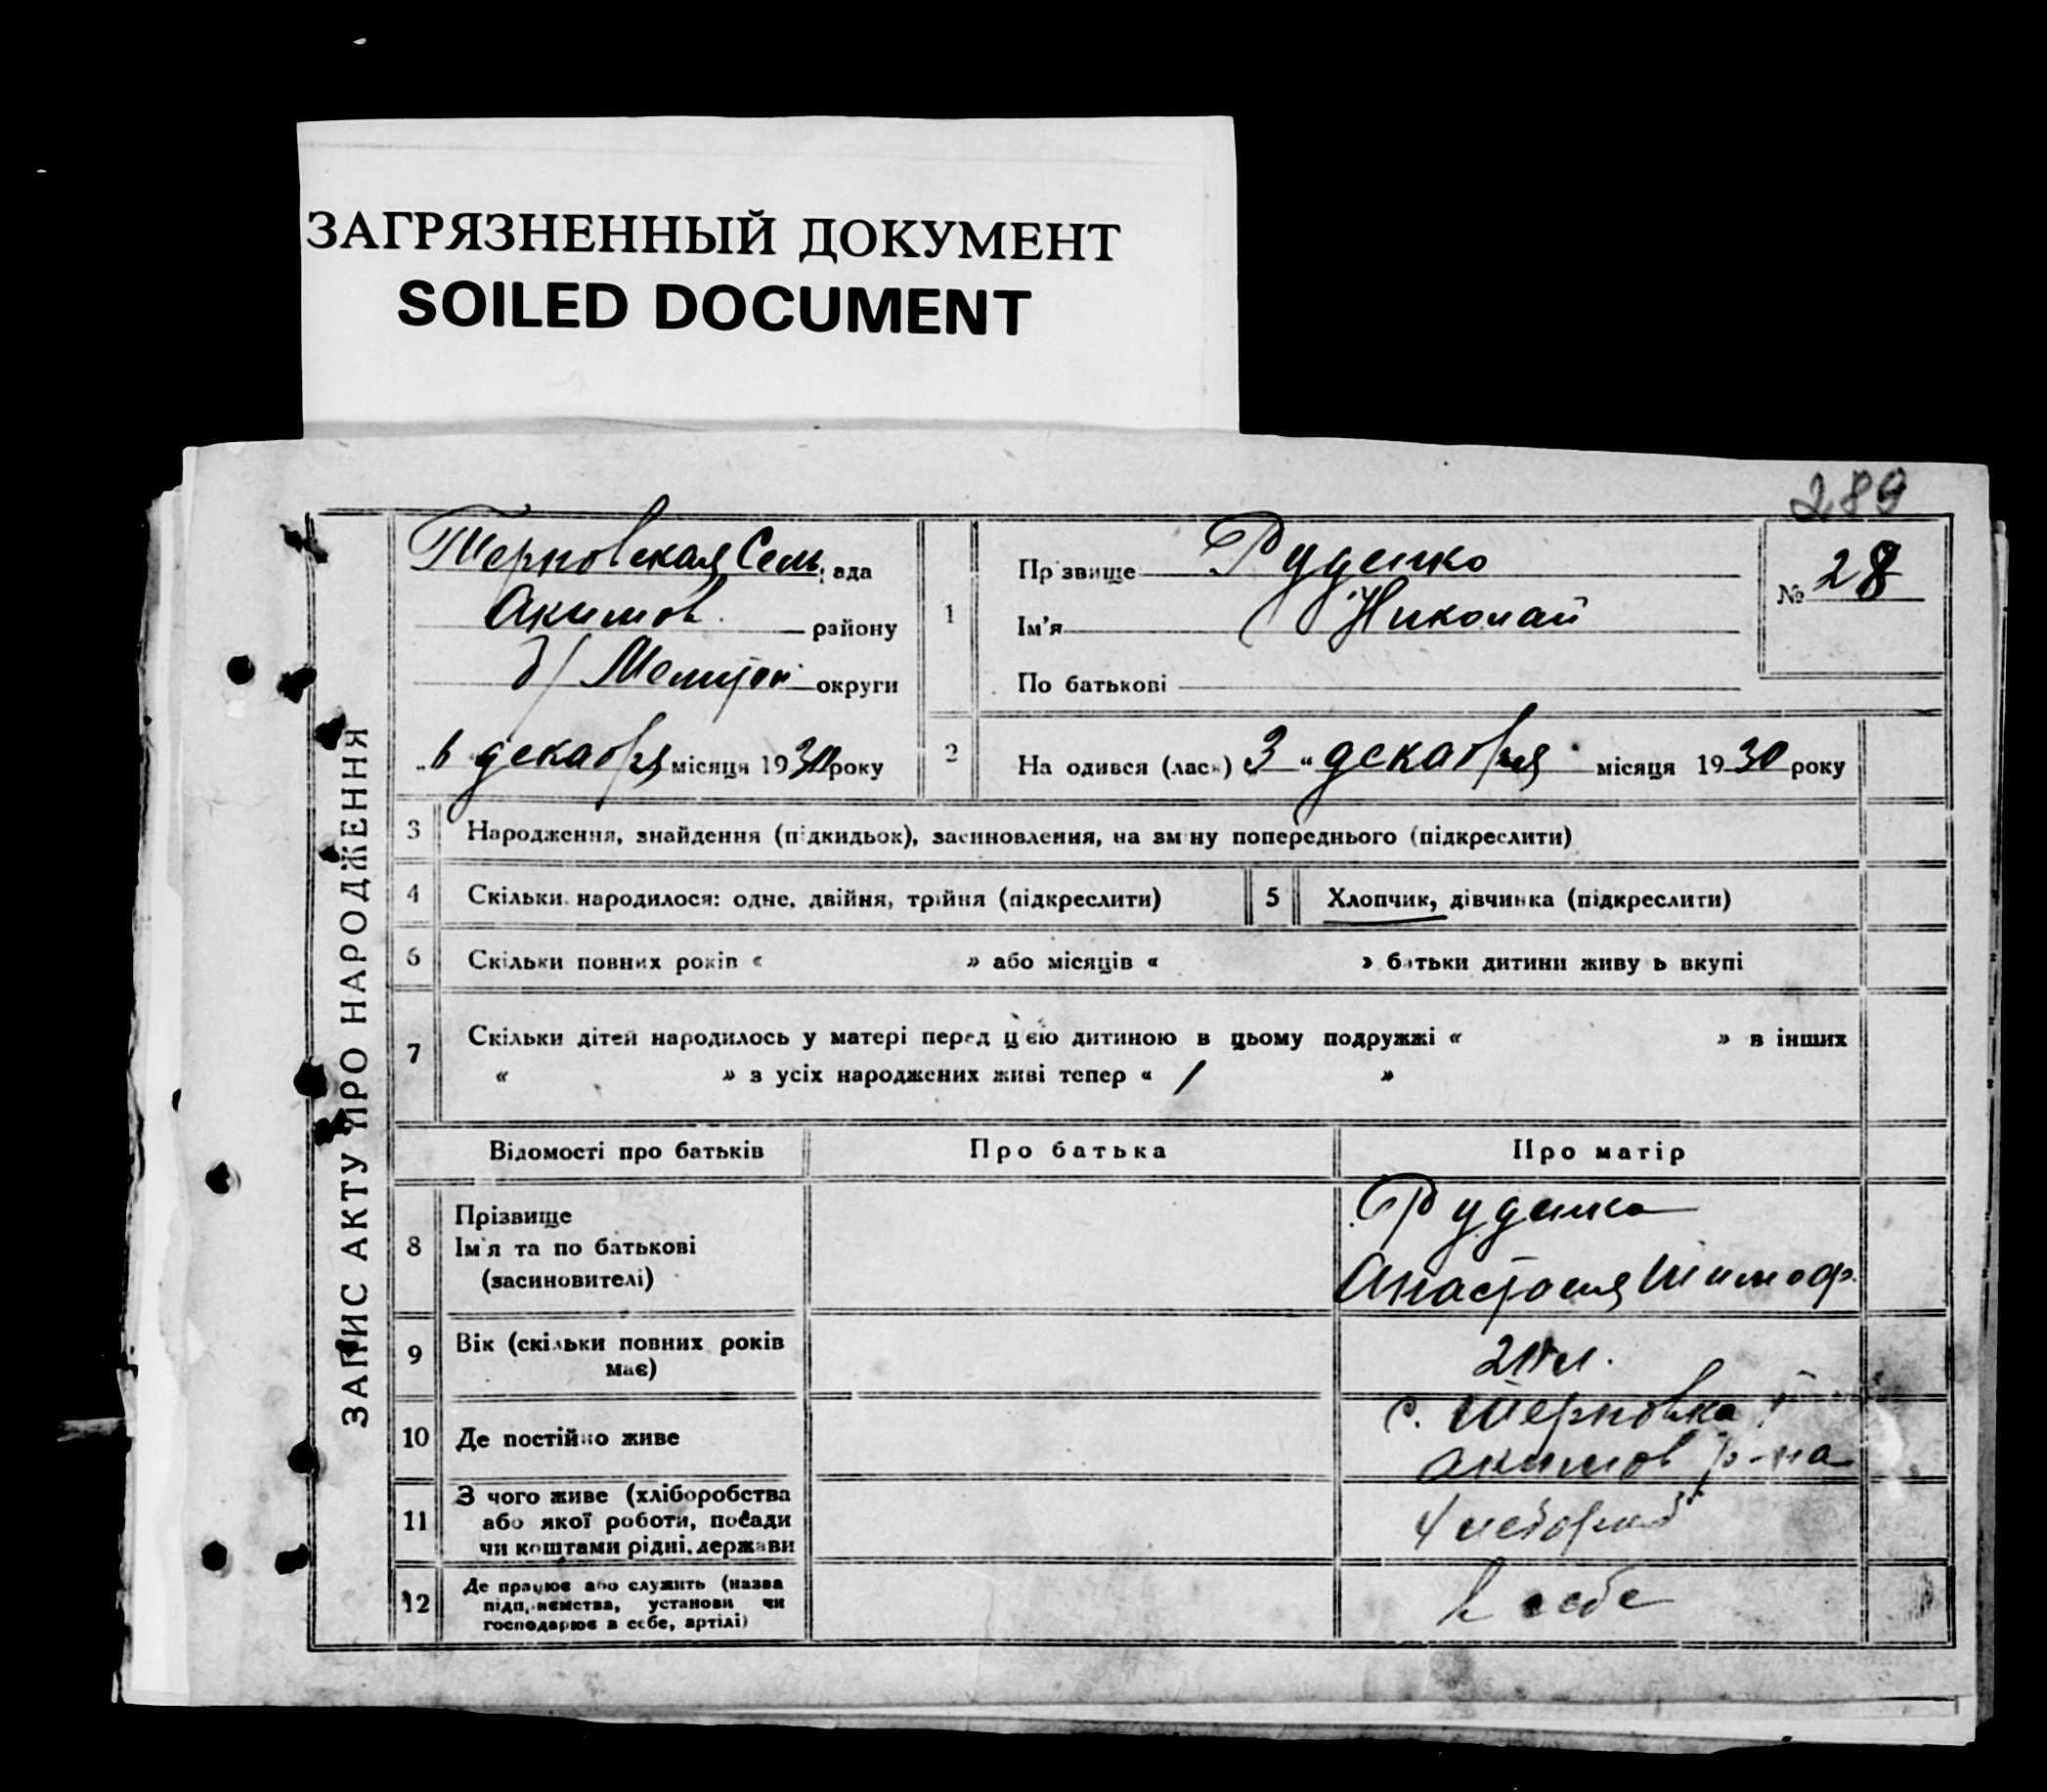 ЗАГРЯЗНЕННЫЙ ДОКУМЕНТ
SOILED DOCUMENT
289
ЗАПИС АКТУ ПРО НАРОДЖЕННЯ
Терновская Сель. ада
Акимов. району
б/ Мелитоп округи
„6 декабря місяця 1930 року
1
Прізвище Руденко
Ім'я Николай
По батькові
№ 28
2
Народився (лась) 3 „ декабря місяця 1930 року
3 Народження, знайдення (підкидьок), засиновлення, на зміну попереднього (підкреслити)
4 Скільки народилося: одне, двійня, трійня (підкреслити)
5 Хлопчик, дівчинка (підкреслити)
6 Скільки повних років « » або місяців « » батьки дитини живуть вкупі
7 Скільки дітей народилось у матері перед цією дитиною в цьому подружжі « » в інших
« » з усіх народжених живі тепер « 1 »
Відомості про батьків Про батька Про матір
8 Прізвище
Ім'я та по батькові
(засиновителі)
Руденко
Анастасия Тимоф.
9 Вік (скільки повних років
має)
л.
10 Де постійно живе
с. Терновка
Акимов р-на
11 З чого живе (хліборобства
або якої роботи, посади
чи коштами рідні, держави
12 Де працює або служить (назва
підприємства, установи чи
господарює в себе, артілі)
в себе